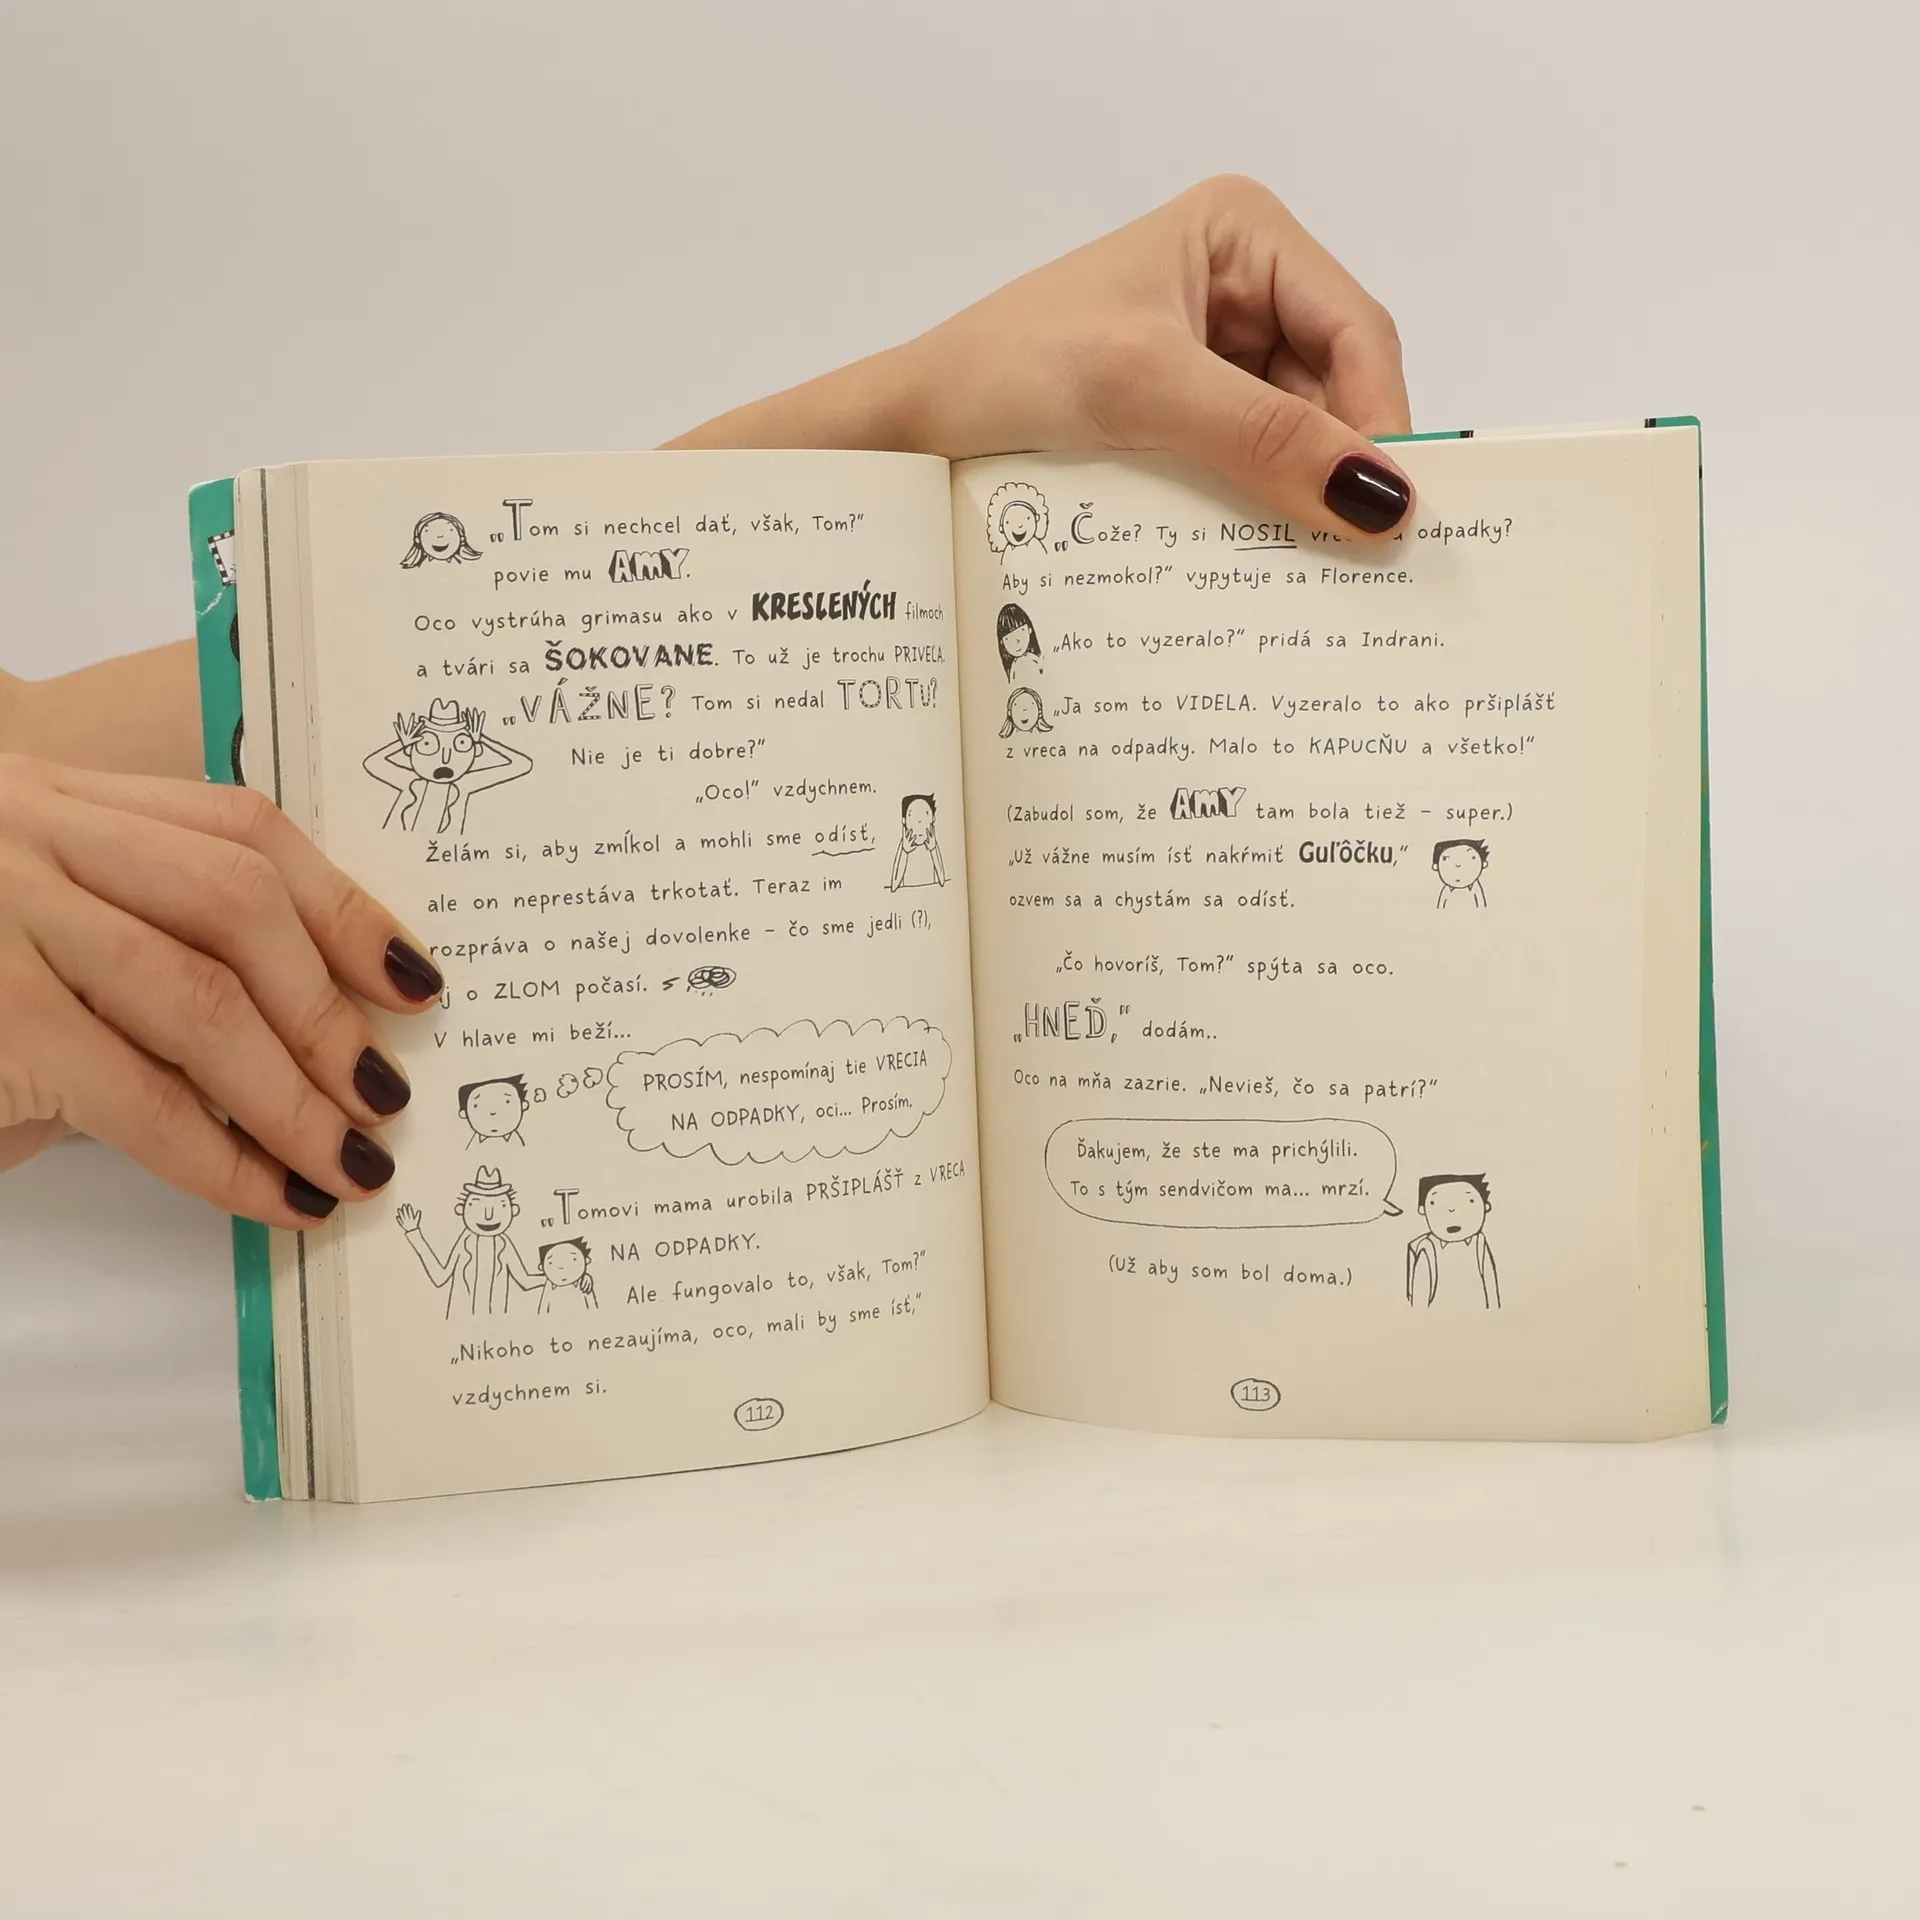 „Tom si nechcel dať, však, Tom?“
povie mu AMY.
Oco vystrúha grimasu ako v KRESLENÝCH filmoch
a tvári sa ŠOKOVANE. To už je trochu PRIVEĽA.
„VÁŽNE? Tom si nedal TORTU?
Nie je ti dobre?“
„Oco!“ vzdychnem.
Želám si, aby zmĺkol a mohli sme odísť,
ale on neprestáva trkotať. Teraz im
rozpráva o našej dovolenke – čo sme jedli (?),
o ZLOM počasí.
V hlave mi beží...
PROSÍM, nespomínaj tie VRECIA
NA ODPADKY, oci... Prosím.
„Tomovi mama urobila PRŠIPLÁŠŤ z VRECA
NA ODPADKY.
Ale fungovalo to, však, Tom?“
„Nikoho to nezaujíma, oco, mali by sme ísť,“
vzdychnem si.
112
„Čože? Ty si NOSIL odpadky?
Aby si nezmokol?“ vypytuje sa Florence.
„Ako to vyzeralo?“ pridá sa Indrani.
„Ja som to VIDELA. Vyzeralo to ako pršiplášť
z vreca na odpadky. Malo to KAPUCŇU a všetko!“
(Zabudol som, že AMY tam bola tiež – super.)
„Už vážne musím ísť nakŕmiť Guľôčku,“
ozvem sa a chystám sa odísť.
„Čo hovoríš, Tom?“ spýta sa oco.
„HNEĎ,“ dodám..
Oco na mňa zazrie. „Nevieš, čo sa patrí?“
Ďakujem, že ste ma prichýlili.
To s tým sendvičom ma... mrzí.
(Už aby som bol doma.)
113